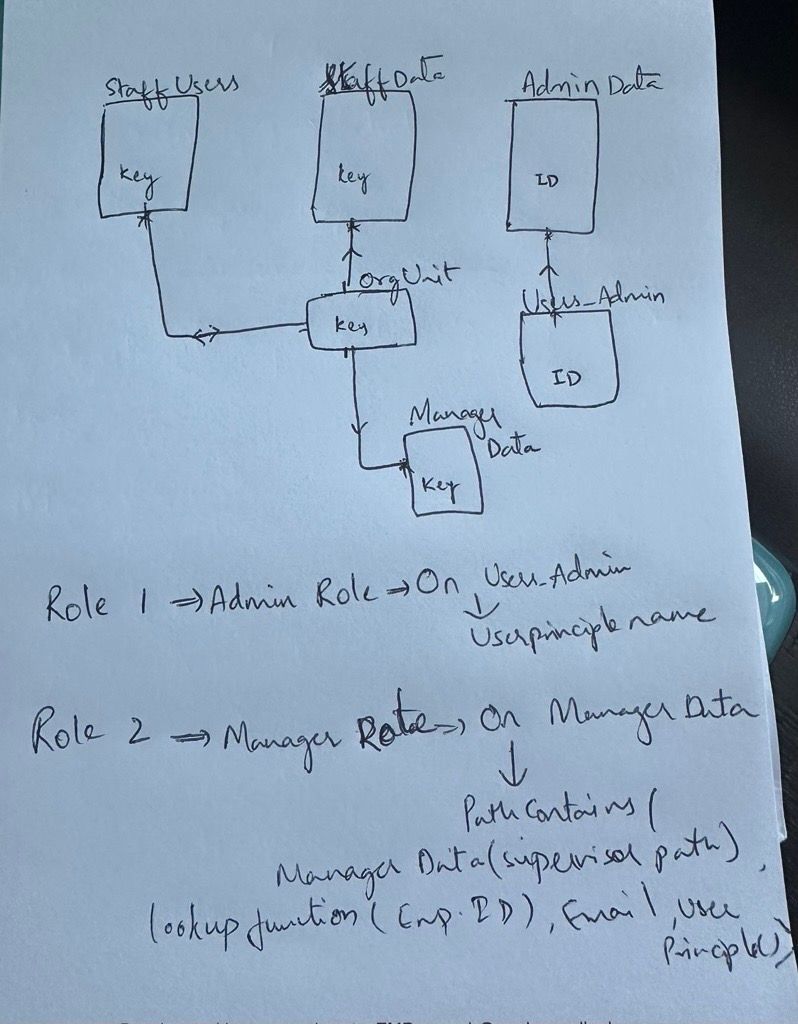 Staff Users
Staff Data
Admin Data
Key
key
ID
OrgUnit
key
Users_Admin
ID
Manager
Data
Key
Role 1 ⇒ Admin Role → On Users_Admin
Userprinciple name
Role 2 ⇒ Manager Role → On Manager Data
Path Contains (
Manager Data (supervisor path),
lookup function (Emp.ID), Email, User
Principle())